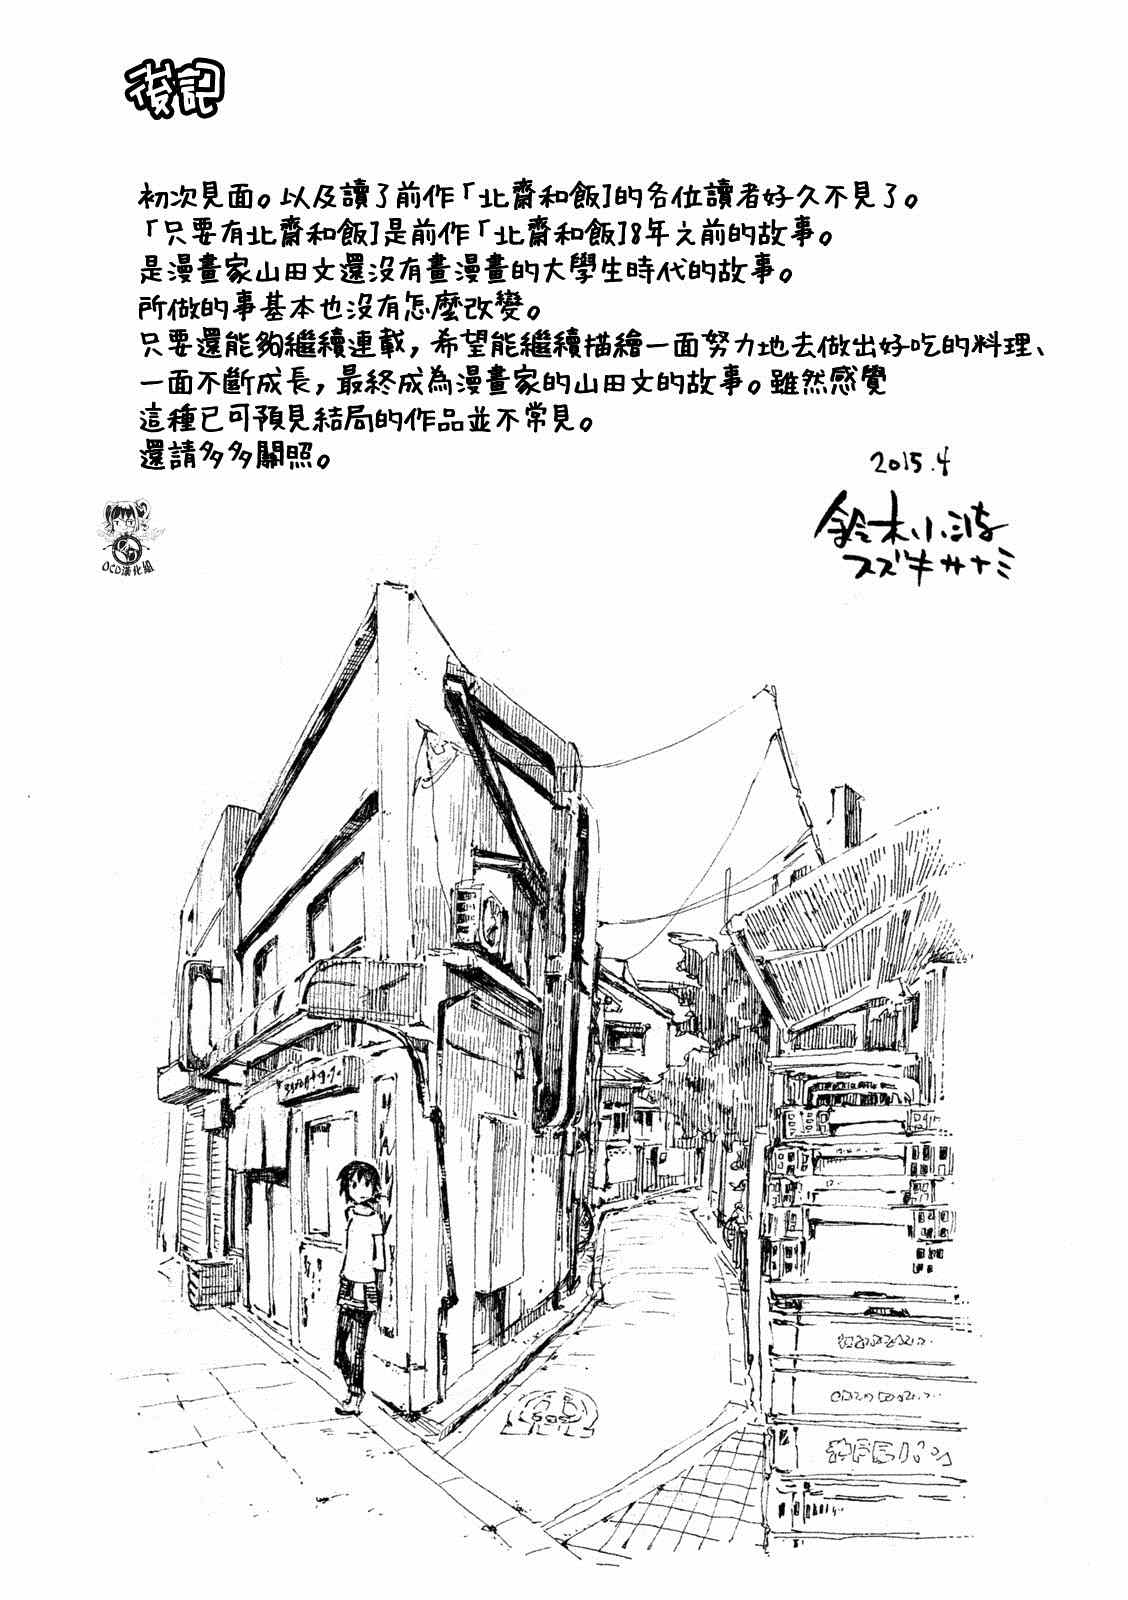 後記
初次見面。以及讀了前作「北齋和飯」的各位讀者好久不見了。
「只要有北齋和飯」是前作「北齋和飯」8年之前的故事。
是漫畫家山田文還沒有畫漫畫的大學生時代的故事。
所做的事基本也沒有怎麼改變。
只要還能夠繼續連載，希望能繼續描繪一面努力地去做出好吃的料理、
一面不斷成長，最終成為漫畫家的山田文的故事。雖然感覺
這種已可預見結局的作品並不常見。
還請多多關照。
2015.4
鈴木小波
スズキサナミ
OCD漢化組
神戸屋パン